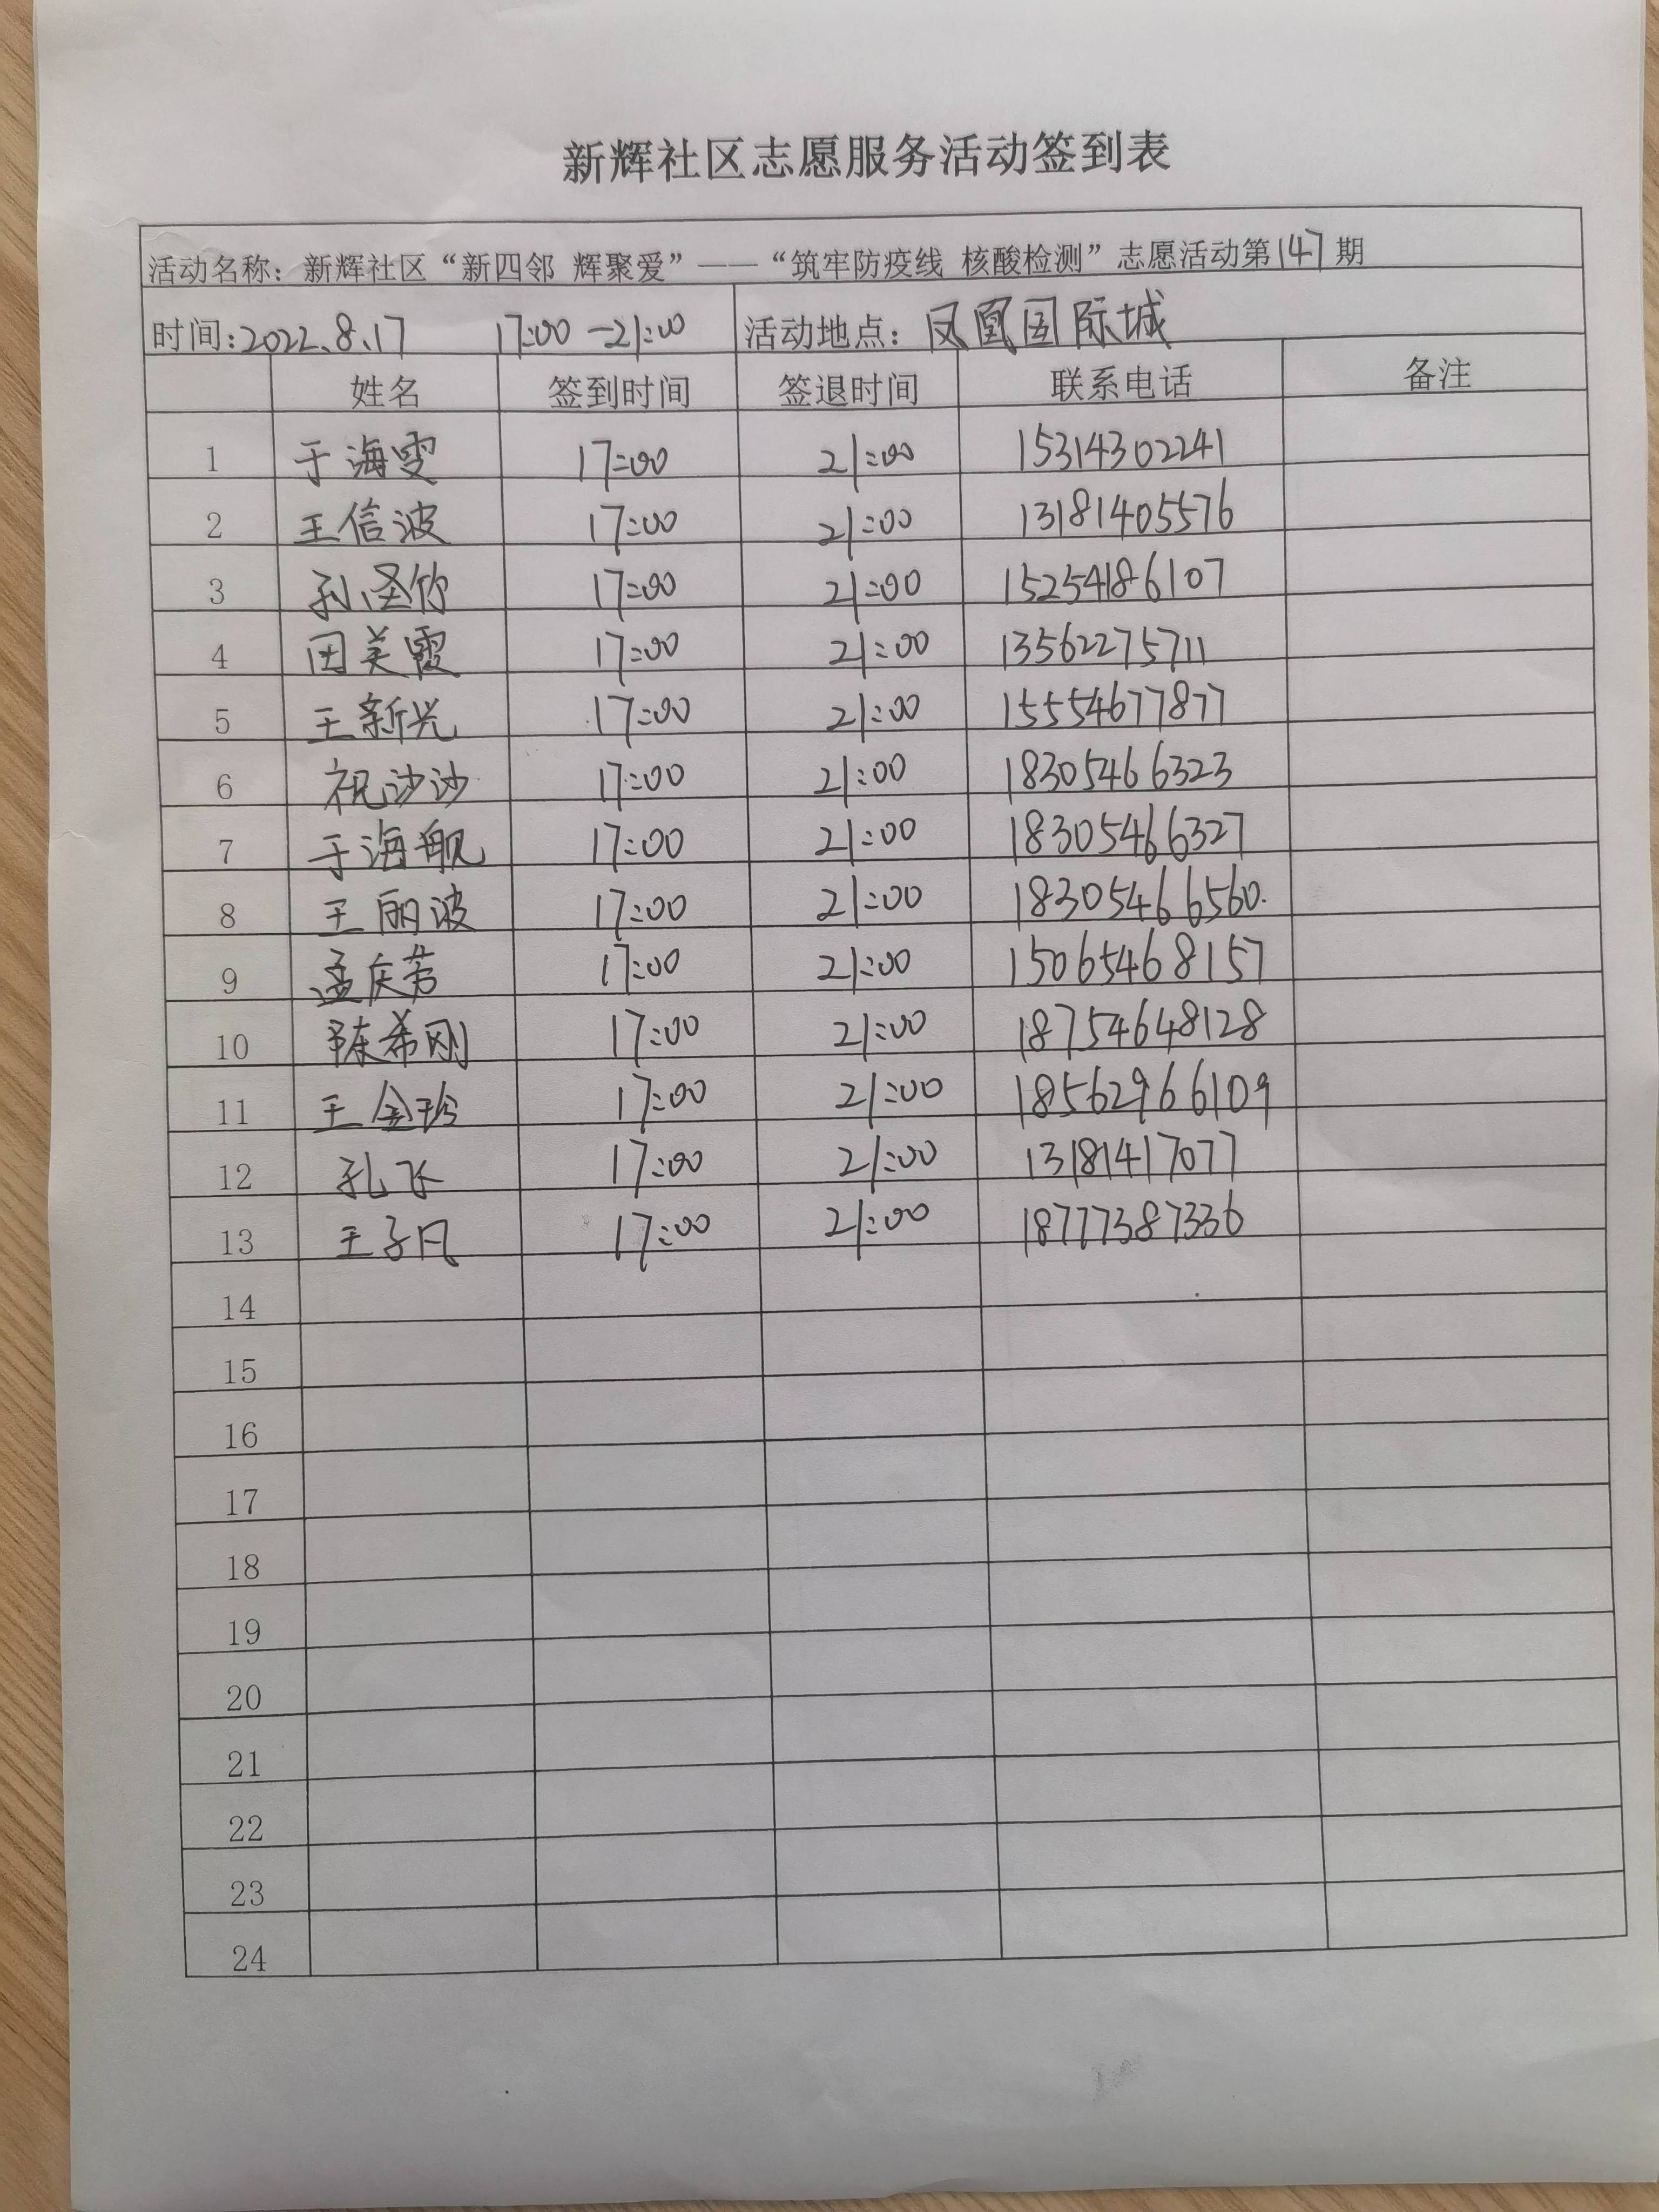 新辉社区志愿服务活动签到表
活动名称：新辉社区“新四邻 辉聚爱”——“筑牢防疫线 核酸检测”志愿活动第147期
时间：2022.8.17 17:00-21:00 活动地点：凤凰国际城
姓名 签到时间 签退时间 联系电话 备注
1 于海雯 17:00 21:00 15314302241
2 王信波 17:00 21:00 13181405576
3 孙圣竹 17:00 21:00 15254186107
4 田美霞 17:00 21:00 13562275711
5 王新光 17:00 21:00 15554677877
6 祝沙沙 17:00 21:00 18305466323
7 于海舰 17:00 21:00 18305466327
8 王丽波 17:00 21:00 18305466560.
9 孟庆芳 17:00 21:00 15065468157
10 陈希刚 17:00 21:00 18754648128
11 王金玲 17:00 21:00 18562966109
12 孔飞 17:00 21:00 13181417077
13 王子凡 17:00 21:00 18777387336
14
15
16
17
18
19
20
21
22
23
24